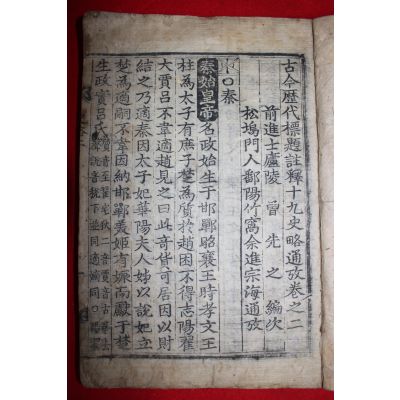 古今歷代標題註釋十九史略通攷卷之二
前進士廬陵曾先之編次
松塢門人鄱陽竹窩余進宗海通攷
秦
秦始皇帝名政始生于邯鄲昭襄王時孝文王
柱為太子有庶子楚為質於趙困不得志陽翟
大賈呂不韋適趙見之曰此奇貨可居因以財
結之乃適秦因太子妃華陽夫人姊以說妃立
楚為適嗣不韋因納邯鄲美姬有娠而獻于楚
生政實呂氏